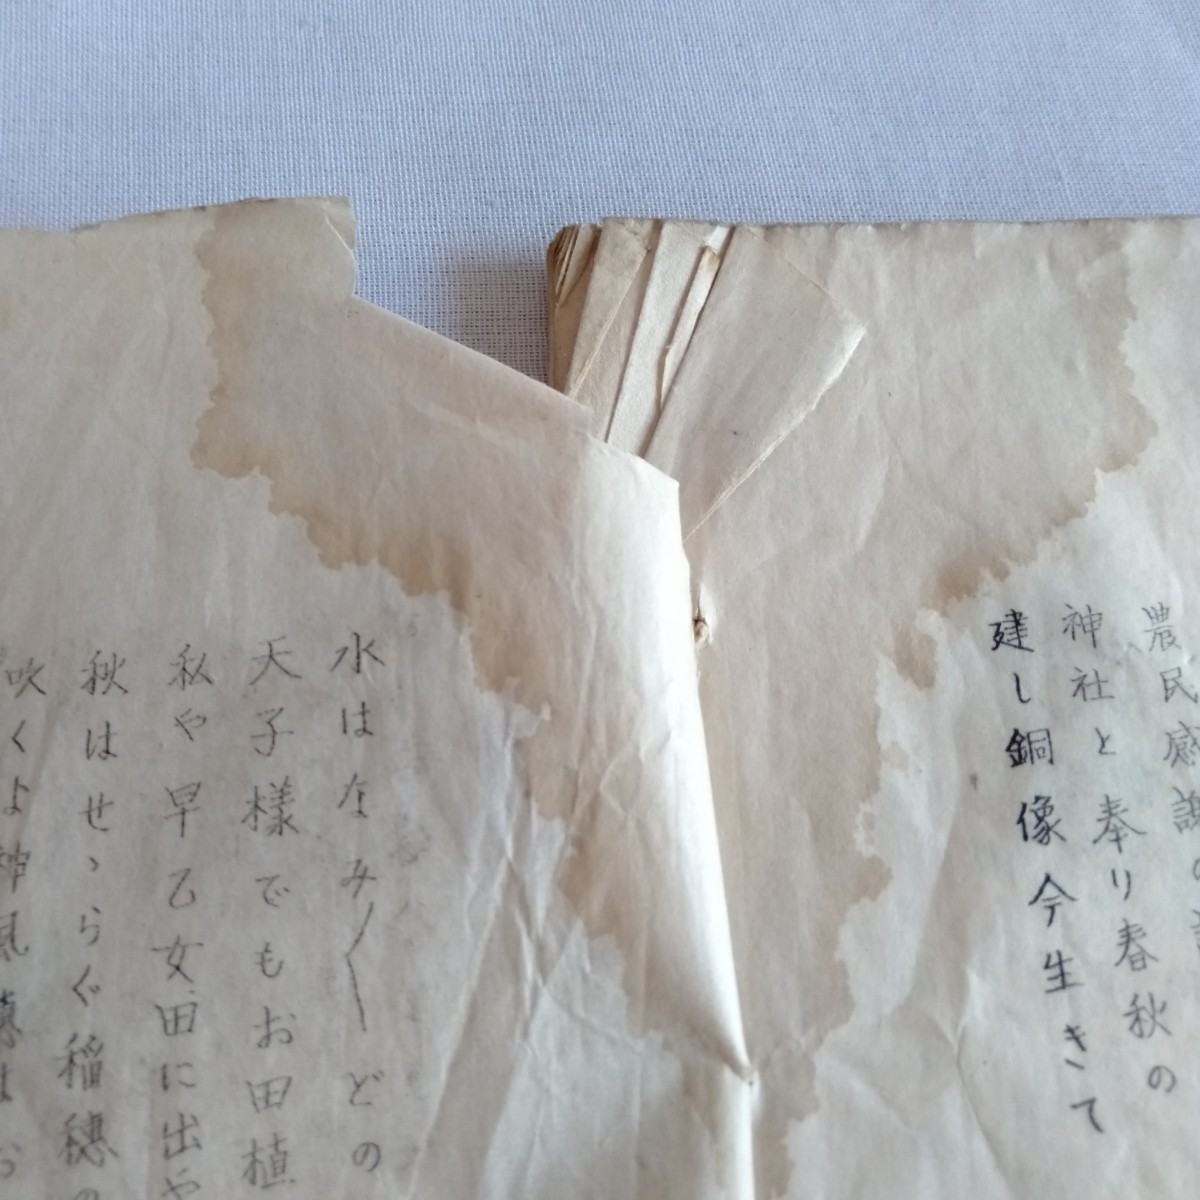 農民感謝の
神社と奉り春秋の
建し銅像今生きて
水はなみ〳〵どの
天子様でもお田植
私や早乙女田に出や
秋はせゝらぐ稲穂の
吹くよ神風穂は